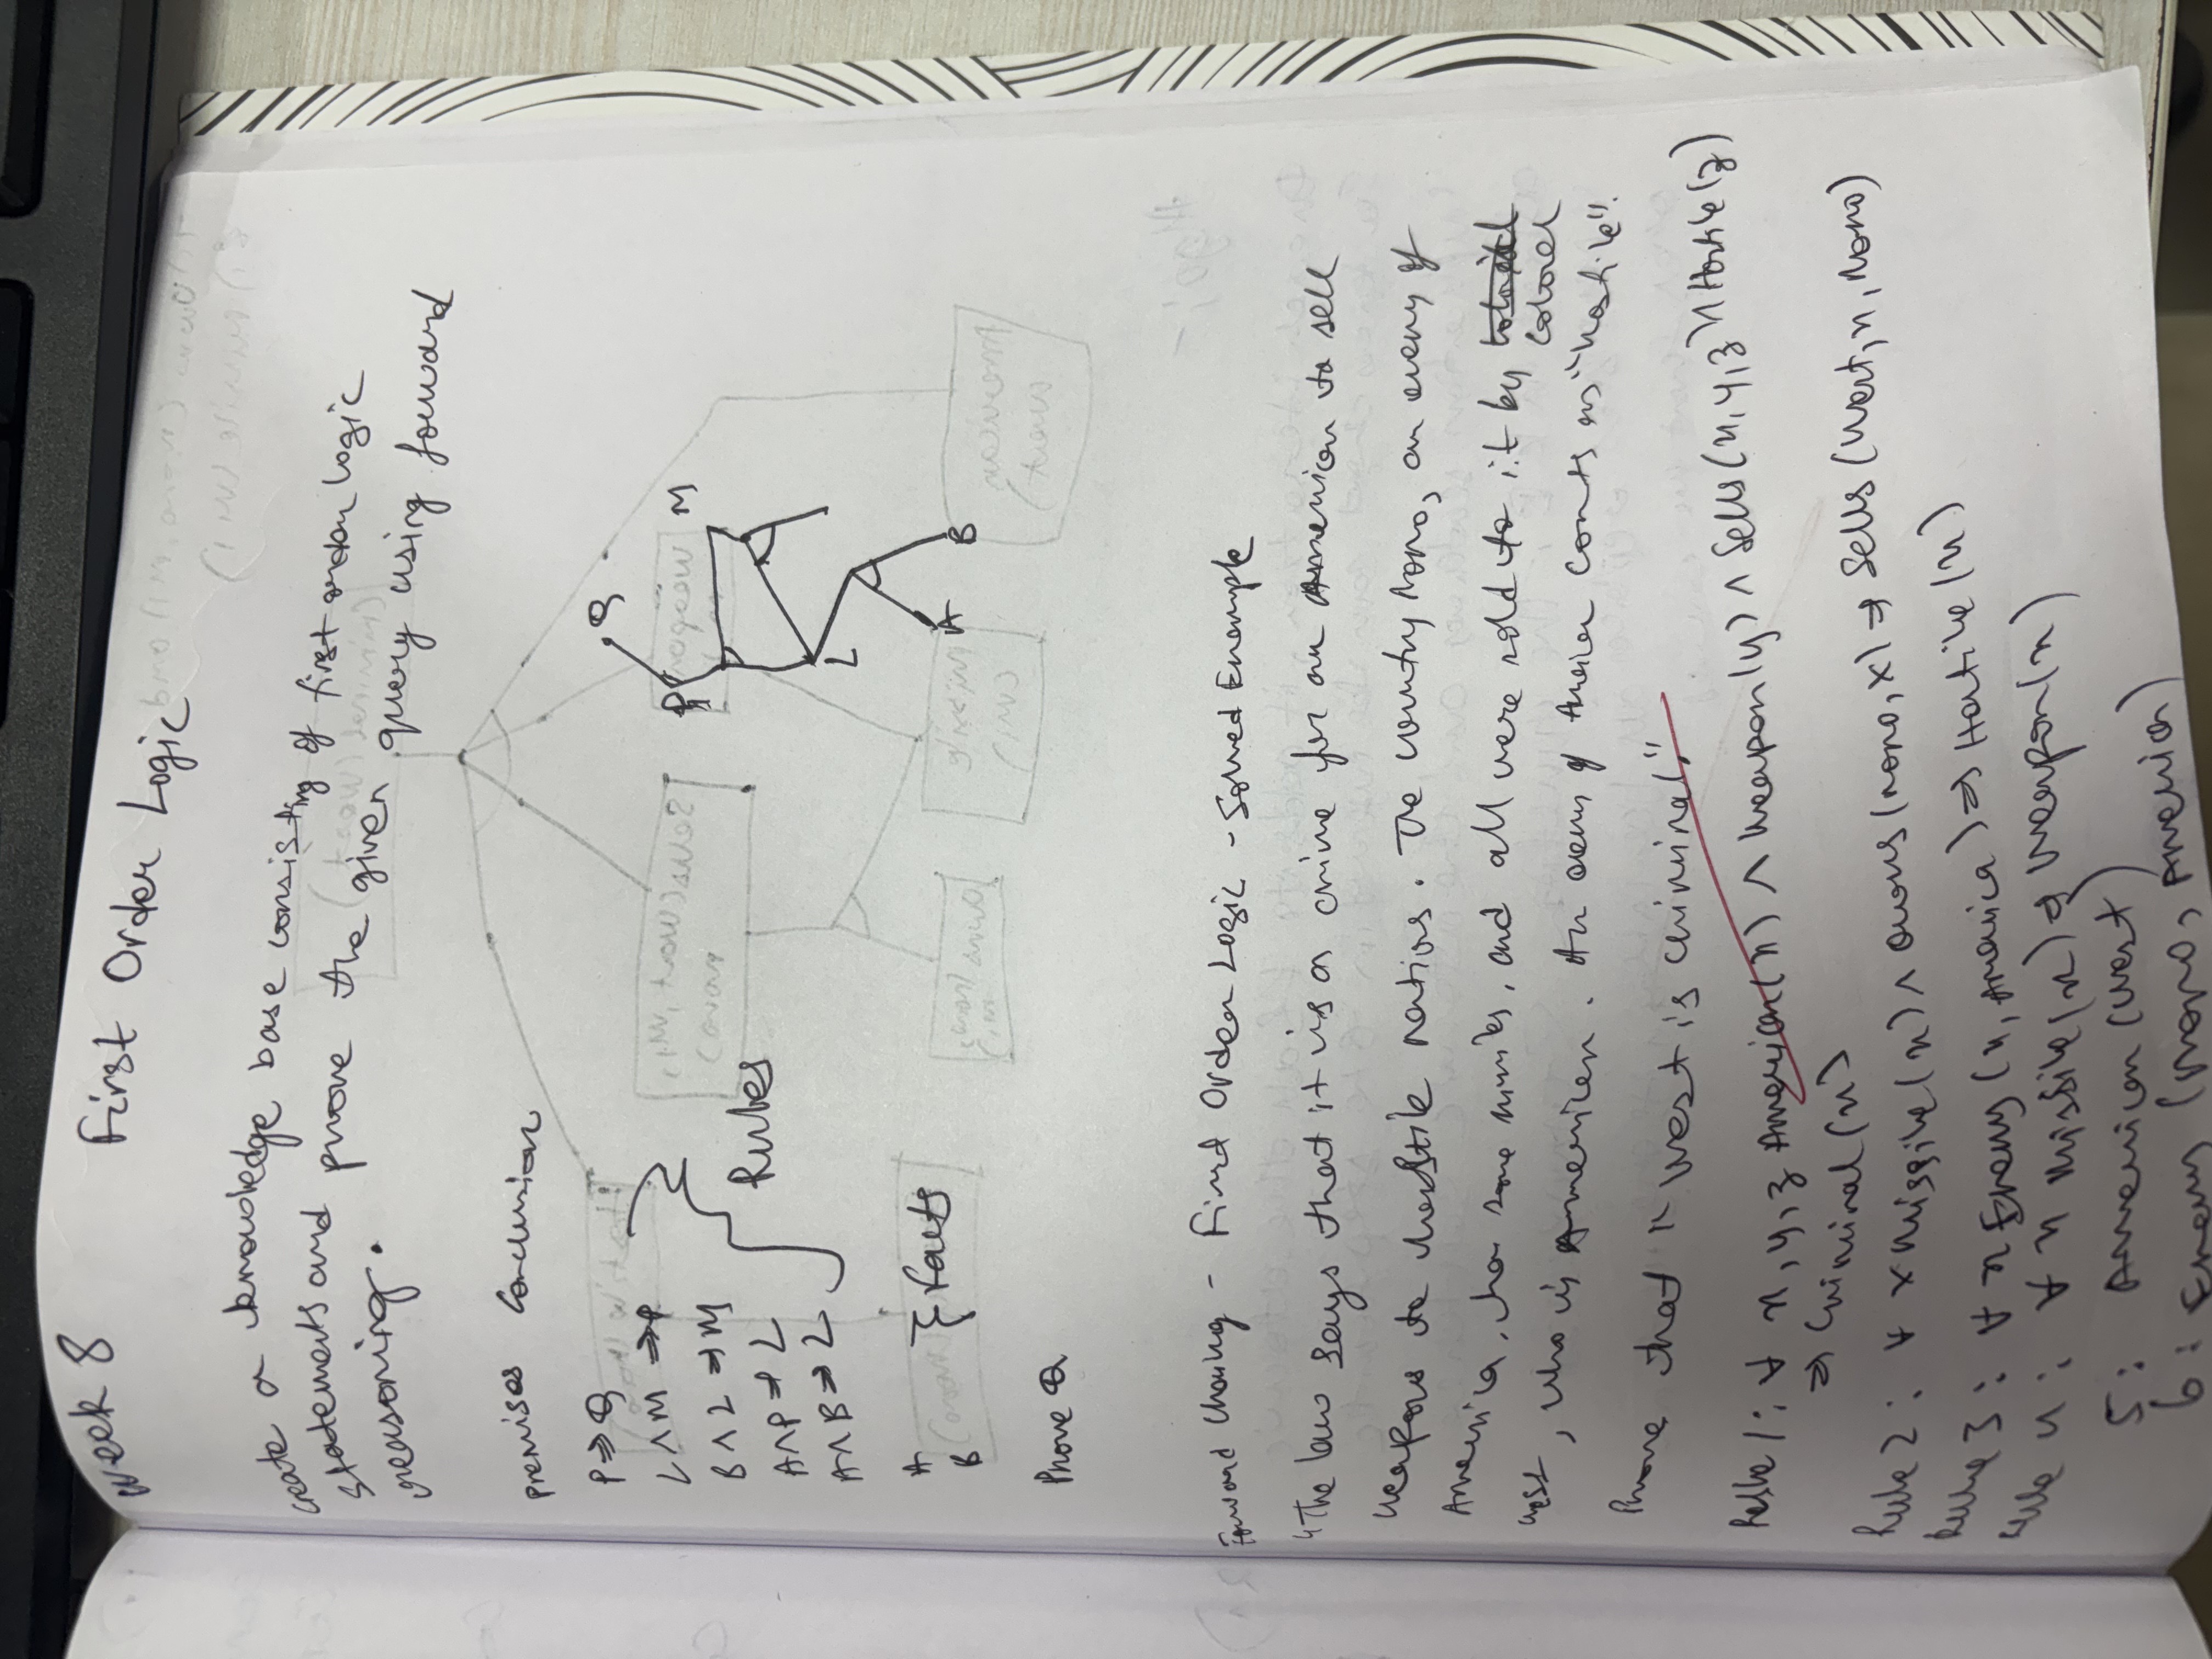 week 8
First Order Logic
create a knowledge base consisting of first order logic
statements and prove the given query using forward
reasoning.
Premises Conclusion
P ⇒ Q
L ∧ M ⇒ P
B ∧ L ⇒ M
A ∧ P ⇒ L
A ∧ B ⇒ L
Rules
A
B
} Facts
Prove Q
Q
P
M
L
A
B
Forward Chaining - First Order Logic - Solved Example
"The law says that it is a crime for an American to sell
weapons to hostile nations. The country Nono, an enemy of
America, has some missiles, and all were sold to it by
Colonel
West, who is American. An enemy of America counts as "hostile".
Prove that "West is Criminal."
Rule 1: ∀ x, y, z American(x) ∧ Weapon(y) ∧ Sells(x, y, z ∧ Hostile(z)
⇒ Criminal(x)
Rule 2: ∀ x Missile(x) ∧ Owns(nono, x) ⇒ Sells(West, x, Nono)
Rule 3: ∀ x Enemy(x, America) ⇒ Hostile(x)
Rule 4: ∀ x Missile(x) ⇒ Weapon(x)
5: American(West)
6: Enemy(Nono, America)